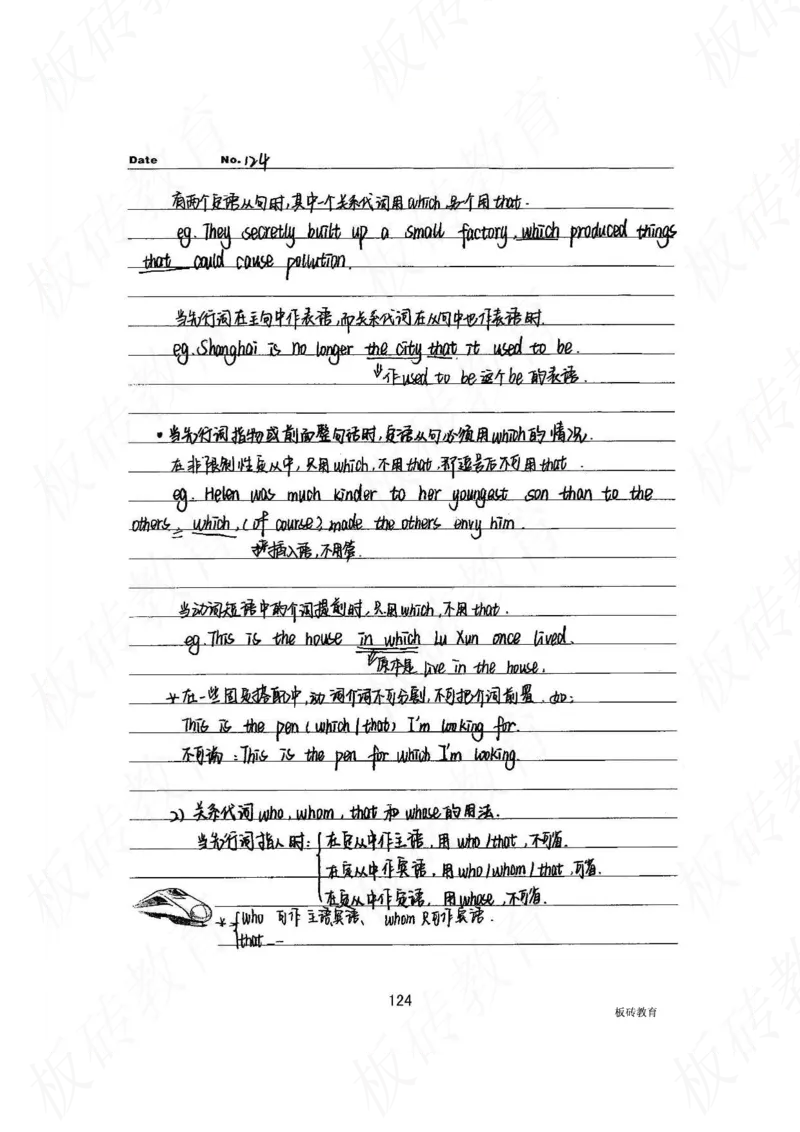 Date No. 124
有两个定语从句时,其中一个关系代词用which,另个用that.
eg. They secretly built up a small factory, which produced things
that could cause pollution.
当先行词在主句中作表语,而关系代词在从句中也作表语时.
eg. Shanghai is no longer the city that it used to be.
作used to be这个be的表语.
·当先行词指物或前面整句话时,定语从句必须用which的情况.
在非限制性定从中,只用which,不用that,即逗号后不可用that.
eg. Helen was much kinder to her youngest son than to the
others, which, (of course) made the others envy him.
插入语,不用管.
当动词短语中的介词提前时,只用which,不用that.
eg. This is the house in which Lu Xun once lived.
原本是 live in the house.
*在一些固定搭配中,动词介词不可分割,不可把介词前置.如:
This is the pen (which / that) I'm looking for.
不可搞:This is the pen for which I'm looking.
2)关系代词who, whom, that和whose的用法.
当先行词指人时:{在定从中作主语,用who/that,不可省.
在定从中作宾语,用who/whom/that,可省.
在定从中作定语,用whose,不可省.
*{who 可作主语宾语、whom只可作宾语.
that --
124
板砖教育